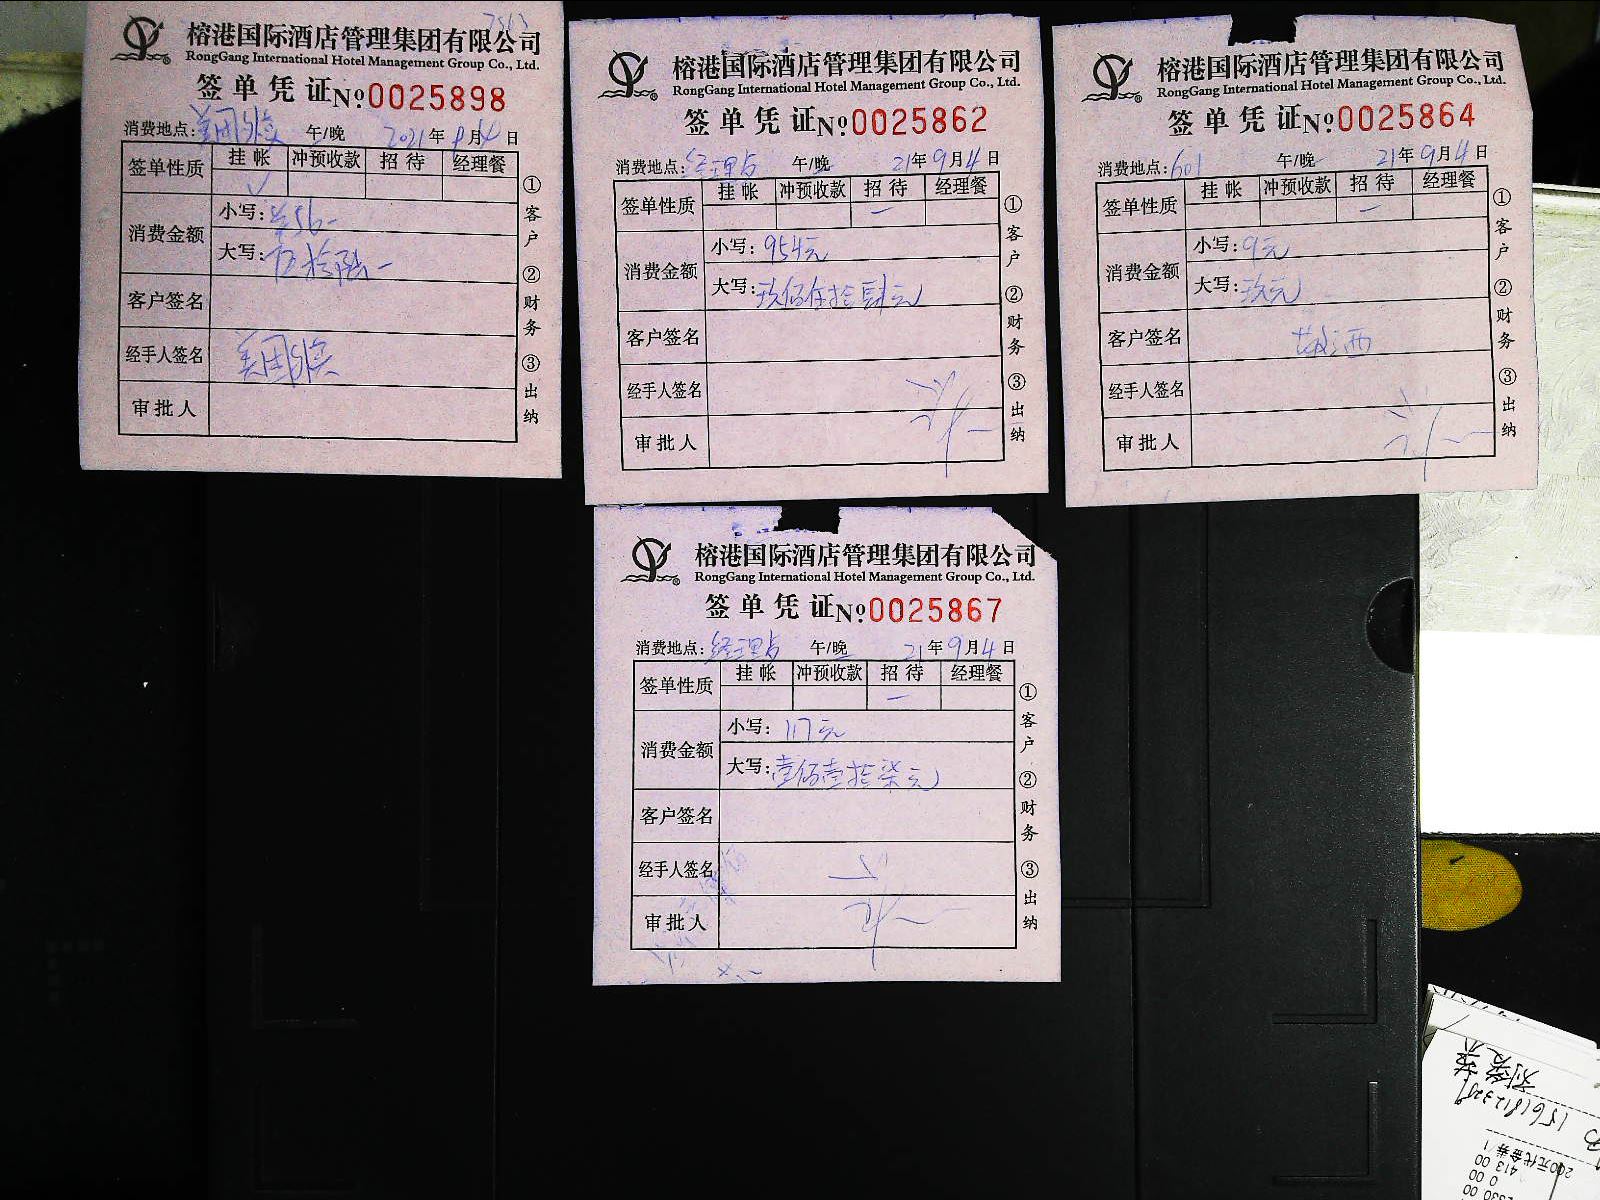 7563
榕港国际酒店管理集团有限公司
RongGang International Hotel Management Group Co., Ltd.
签单凭证 №0025898
消费地点: 美团外卖 午/晚 2021年9月4日
签单性质 挂帐 冲预收款 招待 经理餐
✓
消费金额 小写: ¥56-
大写: 伍拾陆-
客户签名
经手人签名 美团外卖
审批人
①客户 ②财务 ③出纳
榕港国际酒店管理集团有限公司
RongGang International Hotel Management Group Co., Ltd.
签单凭证 №0025862
消费地点: 经理点 午/晚 21年9月4日
签单性质 挂帐 冲预收款 招待 经理餐
消费金额 小写: 954元
大写: 玖佰伍拾肆元
客户签名
经手人签名
审批人
①客户 ②财务 ③出纳
榕港国际酒店管理集团有限公司
RongGang International Hotel Management Group Co., Ltd.
签单凭证 №0025864
消费地点: 601 午/晚 21年9月4日
签单性质 挂帐 冲预收款 招待 经理餐
消费金额 小写: 9元
大写: 玖元
客户签名
经手人签名
审批人
①客户 ②财务 ③出纳
榕港国际酒店管理集团有限公司
RongGang International Hotel Management Group Co., Ltd.
签单凭证 №0025867
消费地点: 经理点 午/晚 21年9月4日
签单性质 挂帐 冲预收款 招待 经理餐
消费金额 小写: 117元
大写: 壹佰壹拾柒元
客户签名
经手人签名
审批人
①客户 ②财务 ③出纳
200元代金券/1
413 00
0 00